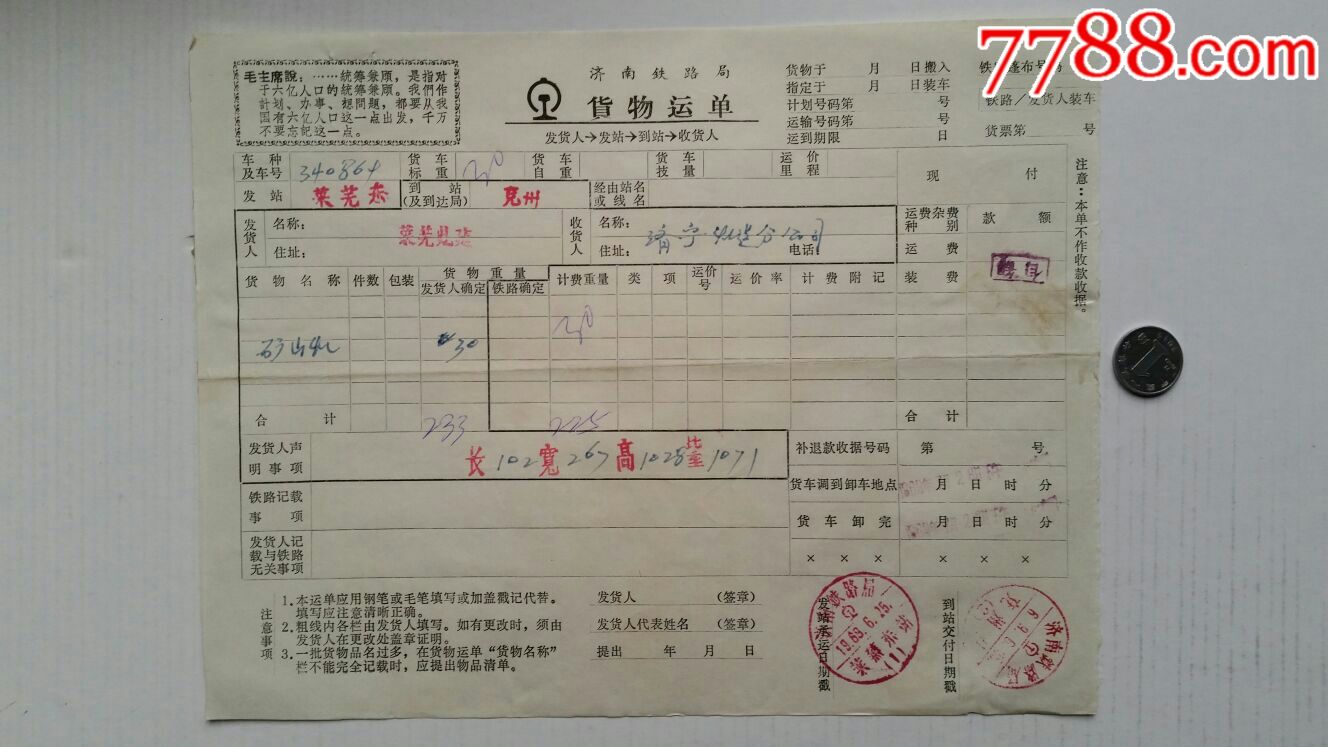 7788.com
毛主席說：……統筹兼顾，是指对
于六亿人口的統筹兼顾。我們作
計划、办事、想問題，都要从我
国有六亿人口这一点出发，千万
不要忘記这一点。
济南铁路局
貨物运单
发货人→发站→到站→收货人
货物于 月 日搬入
指定于 月 日装车
计划号码第 号
运输号码第 号
运到期限 日
铁路篷布号码
铁路／发货人装车
货票第 号
车种及车号 340864
货车标重 30
货车自重
货车技量
运价里程
现付
发站 莱芜东
到站(及到达局) 兗州
经由站名或线名
发货人
名称：
住址：
收货人
名称：
住址：
电话：
运费杂费种别
款额
运费
装费
货物名称
件数
包装
货物重量
发货人确定
铁路确定
计费重量
类项
运价号
运价率
计费附记
30
30
合计
233
225
合计
发货人声明事项
长102寬267高1025比重1071
补退款收据号码 第 号
铁路记载事项
货车调到卸车地点 月 日 时 分
货车卸完 月 日 时 分
发货人记载与铁路无关事项
× × × × × ×
注意：本单不作收款收据。
注意事项
1．本运单应用钢笔或毛笔填写或加盖戳记代替。
填写应注意清晰正确。
2．粗线内各栏由发货人填写。如有更改时，须由
发货人在更改处盖章证明。
3．一批货物品名过多，在货物运单“货物名称”
栏不能完全记载时，应提出物品清单。
发货人 （签章）
发货人代表姓名 （签章）
提出 年 月 日
发站承运日期戳
济南铁路局
1969.6.25.
莱芜东站
(1)
到站交付日期戳
济南铁路局